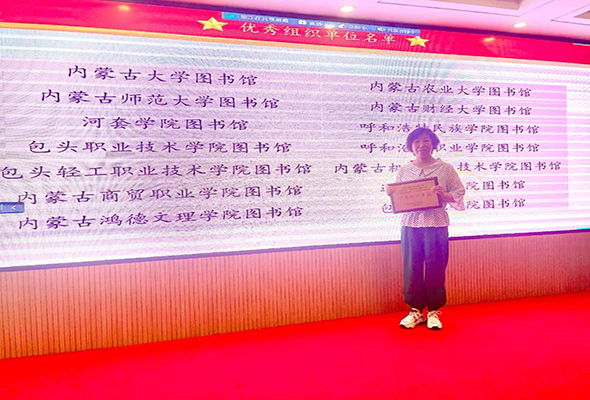 优秀组织单位名单
内蒙古大学图书馆
内蒙古师范大学图书馆
河套学院图书馆
包头职业技术学院图书馆
包头轻工职业技术学院图书馆
内蒙古商贸职业学院图书馆
内蒙古鸿德文理学院图书馆
内蒙古农业大学图书馆
内蒙古财经大学图书馆
呼和浩特民族学院图书馆
呼和浩 职业学院图书馆
内蒙古机 技术学院图书馆
院图书馆
院图书馆